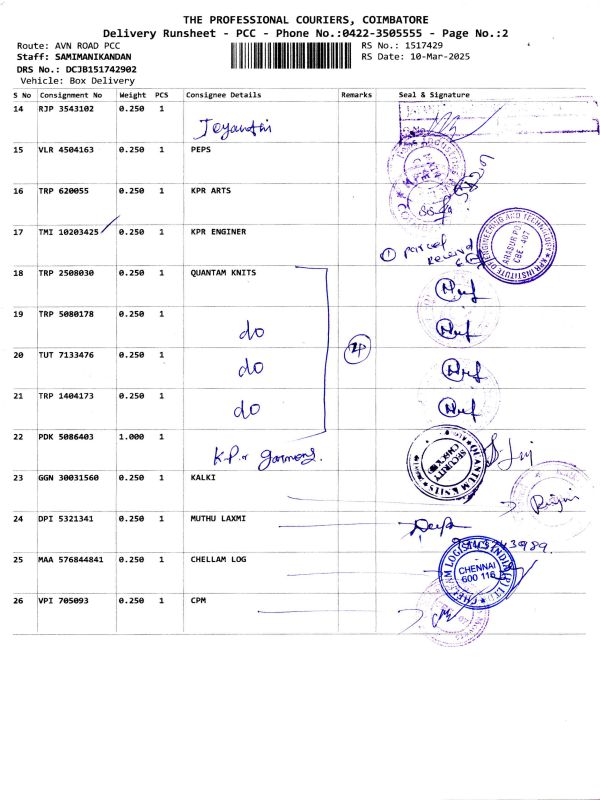 THE PROFESSIONAL COURIERS, COIMBATORE
Delivery Runsheet - PCC - Phone No.:0422-3505555 - Page No.:2
Route: AVN ROAD PCC
RS No.: 1517429
Staff: SAMIMANIKANDAN
RS Date: 10-Mar-2025
DRS No.: DCJB151742902
Vehicle: Box Delivery
S No Consignment No Weight PCS Consignee Details Remarks Seal & Signature
14 RJP 3543102 0.250 1 Jeyanthi
15 VLR 4504163 0.250 1 PEPS
16 TRP 620055 0.250 1 KPR ARTS
17 TMI 10203425 0.250 1 KPR ENGINER
① parcel Received
KPR INSTITUTE OF ENGINEERING AND TECHNOLOGY
ARASUR PO
CBE - 407
18 TRP 2508030 0.250 1 QUANTAM KNITS
19 TRP 5080178 0.250 1 do
20 TUT 7133476 0.250 1 do
21 TRP 1404173 0.250 1 do
22 PDK 5086403 1.000 1 K.P.R
QUANTUM KNITS
SECURITY
23 GGN 30031560 0.250 1 KALKI
24 DPI 5321341 0.250 1 MUTHU LAXMI
25 MAA 576844841 0.250 1 CHELLAM LOG
CHELLAM LOGISTICS INDIA (P) LTD
CHENNAI
600 116
26 VPI 705093 0.250 1 CPM